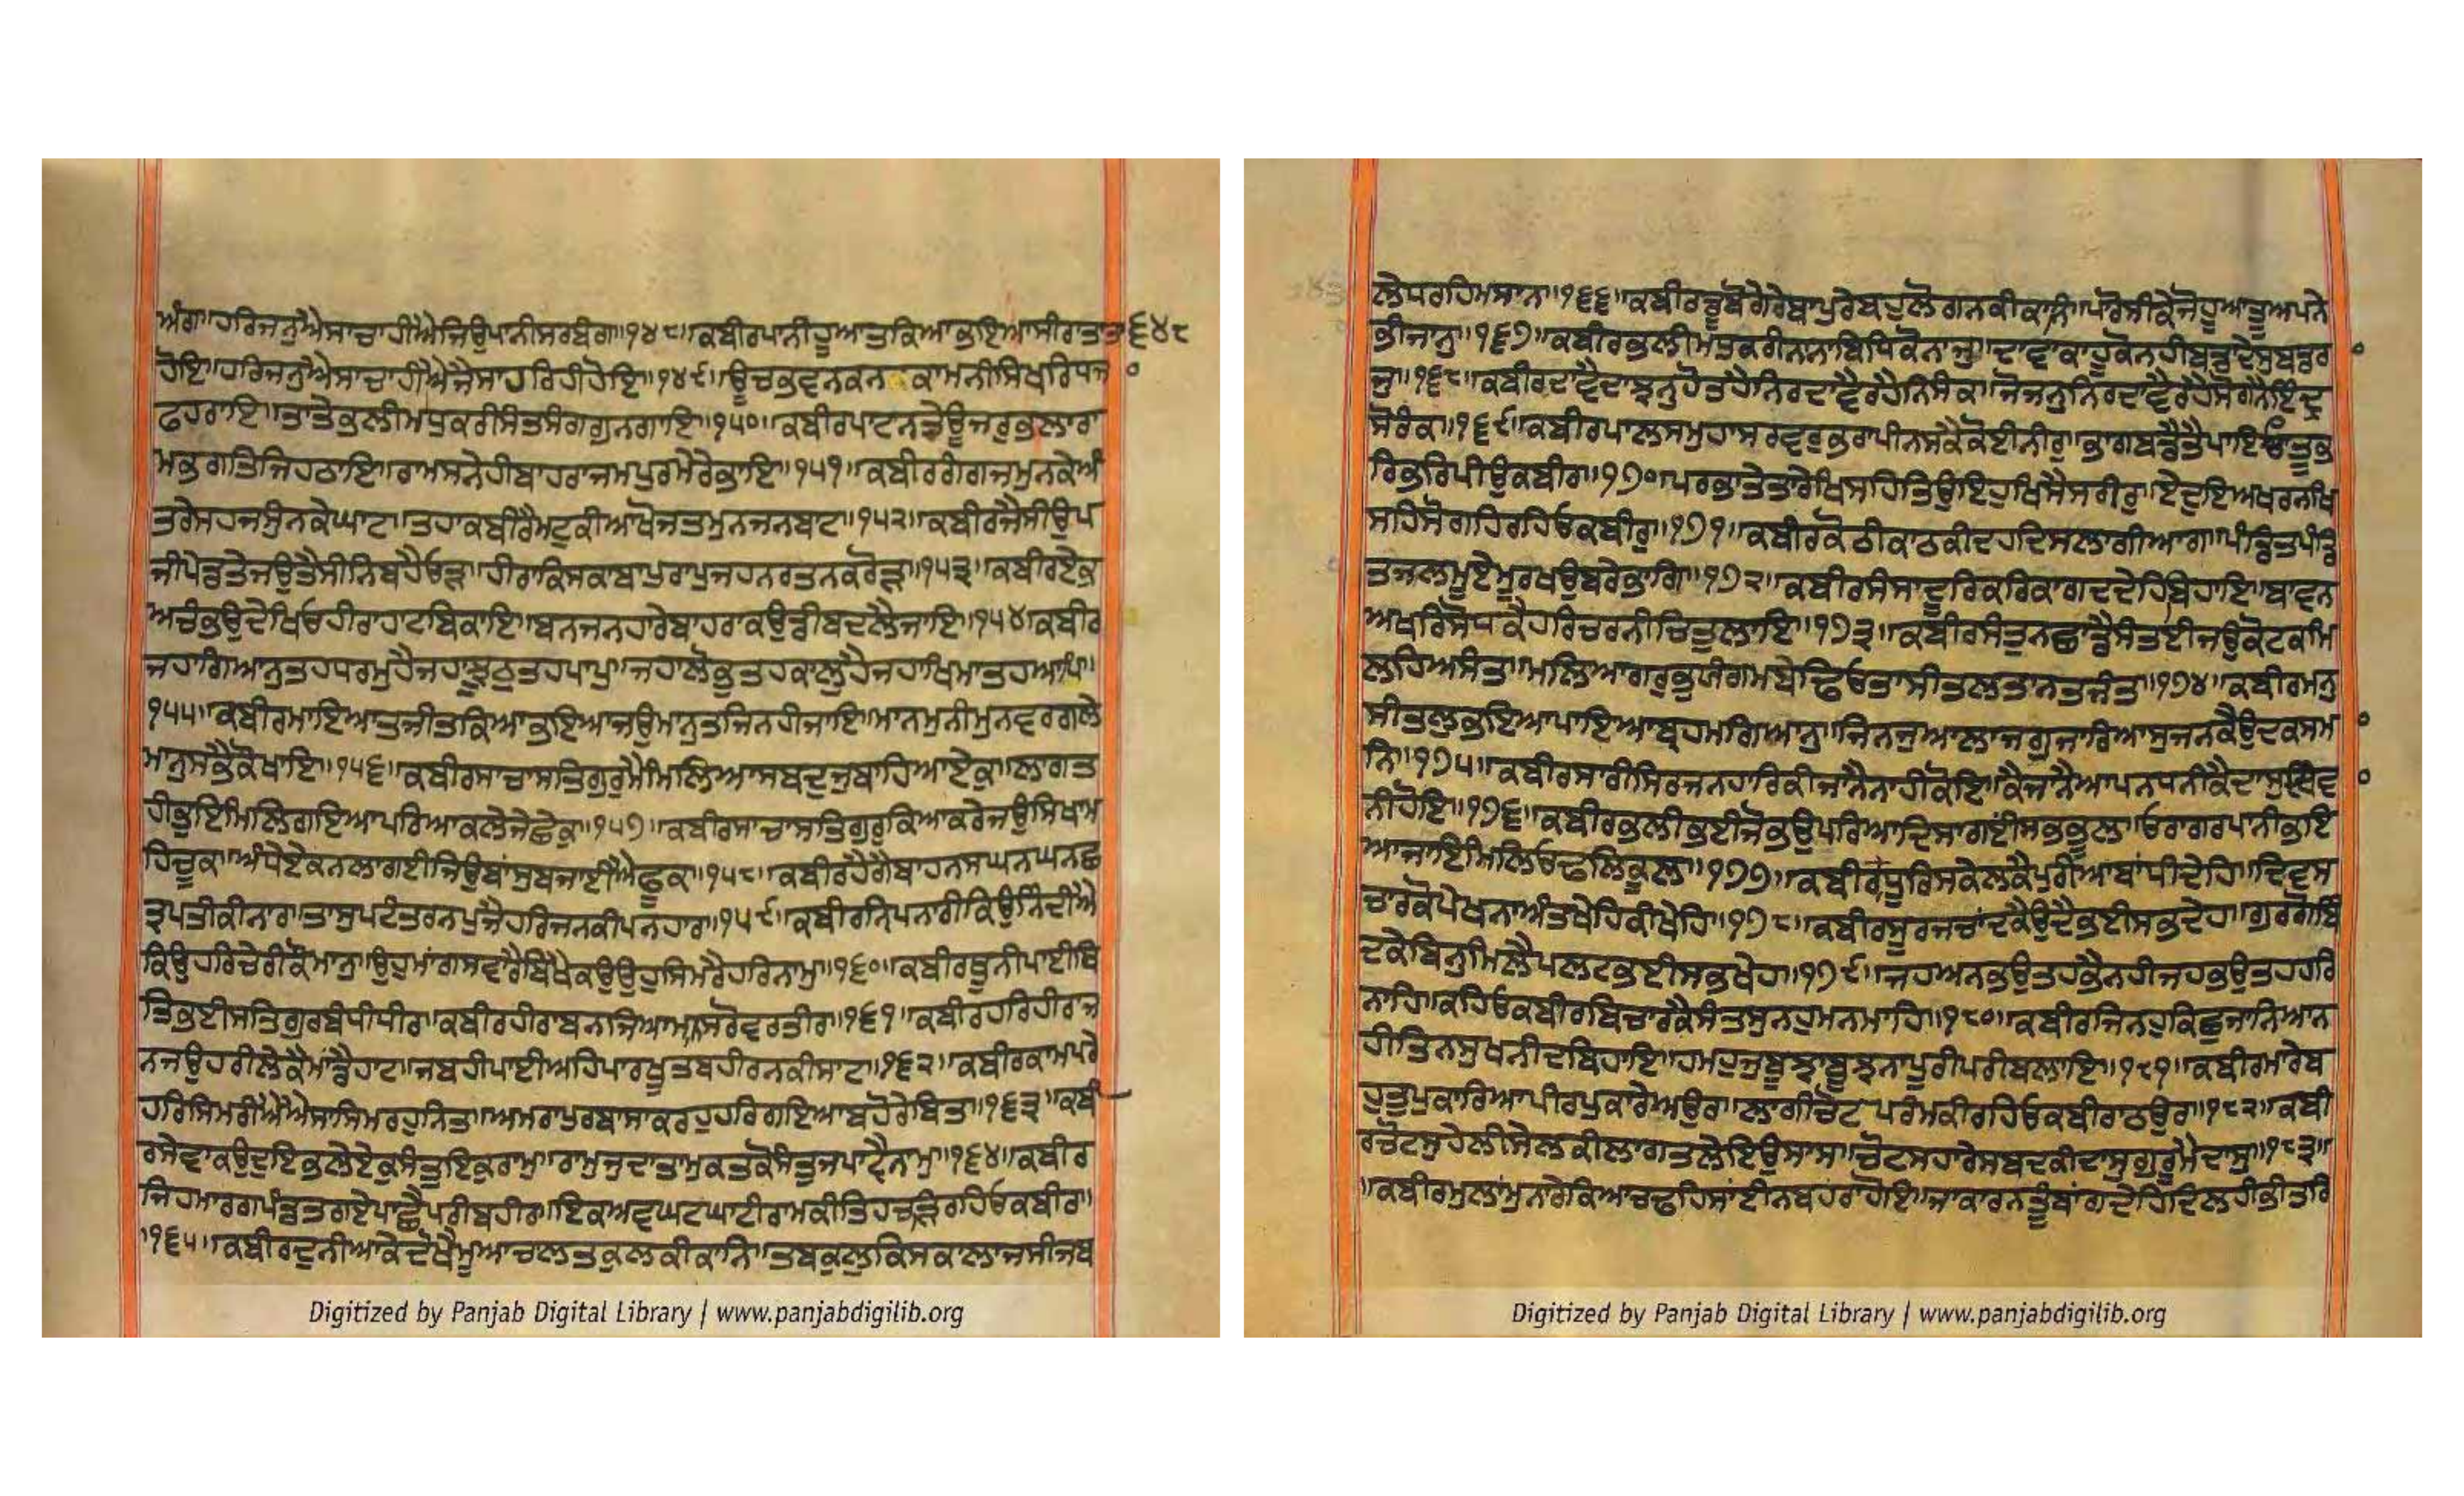 ਅੰਗ॥ਹਰਿਜਨੁਐਸਾਚਾਹੀਐਜਿਉਪਾਨੀਸਰਬੰਗ॥੧੪੮॥ਕਬੀਰਪਾਨੀਹੂਆਤਕਿਆਭਇਆਸੀਰਾਤਤਾ ੬੪੮
ਹੋਇ॥ਹਰਿਜਨੁਐਸਾਚਾਹੀਐਜੈਸਾਹਰਿਹੀਹੋਇ॥੧੪੯॥ਊਚਭਵਨਕਨਕਾਮਨੀਸਿਖਰਿਧਜ
ਫਹਰਾਇ॥ਤਾਤੇਭਲੀਮਧੁਕਰੀਸੰਤਸੰਗਗੁਨਗਾਇ॥੧੫੦॥ਕਬੀਰਪਾਟਨਤੇਊਜਰੁਭਲਾਰਾ
ਮਭਗਤਿਜਿਹਠਾਇ॥ਰਾਮਸਨੇਹੀਬਾਹਰਾਜਮਪੁਰਮੇਰੇਭਾਇ॥੧੫੧॥ਕਬੀਰਗੰਗਜਮੁਨਕੇਅੰ
ਤਰੇਸਹਜਸੁੰਨਕੇਘਾਟ॥ਤਹਾਕਬੀਰੈਮਟੁਕੀਆਖੋਜਤਮੁਨਜਨਬਟ॥੧੫੨॥ਕਬੀਰਜੈਸੀਉਪ
ਜੀਪੇਡਤੇਜਉਤੈਸੀਨਿਬਹੈਓੜ॥ਹੀਰਾਕਿਸਕਾਬਾਪੁਰਾਪੁਜਹਨਰਤਨਕਰੋੜ॥੧੫੩॥ਕਬੀਰਏਕੁ
ਅਚੰਭਉਦੇਖਿਓਹੀਰਾਹਾਟਬਿਕਾਇ॥ਬਨਜਨਹਾਰੇਬਾਹਰਾਕਉਡੀਬਦਲੈਜਾਇ॥੧੫੪॥ਕਬੀਰ
ਜਹਾਗਿਆਨੁਤਹਧਰਮੁਹੈਜਹਾਝੂਠੁਤਹਪਾਪੁ॥ਜਹਾਲੋਭੁਤਹਕਾਲੁਹੈਜਹਾਖਿਮਾਤਹਆਪਿ॥
੧੫੫॥ਕਬੀਰਮਾਇਆਤਜੀਤਕਿਆਭਇਆਜਉਮਾਨੁਤਜਿਨਹੀਜਾਇ॥ਮਾਨਮੁਨੀਮੁਨਵਰਗਲੇ
ਮਾਨੁਸਭੈਕੋਖਾਇ॥੧੫੬॥ਕਬੀਰਸਾਚਾਸਤਿਗੁਰੁਮੈਮਿਲਿਆਸਬਦੁਜੁਬਾਹਿਆਏਕੁ॥ਲਾਗਤ
ਹੀਭੁਇਮਿਲਿਗਇਆਪਰਿਆਕਲੇਜੇਛੇਕੁ॥੧੫੭॥ਕਬੀਰਸਾਚਾਸਤਿਗੁਰੁਕਿਆਕਰੇਜਉਸਿਖਾਮ
ਹਿਚੂਕ॥ਅੰਧੇਏਕਨਲਾਗਈਜਿਉਬਾਂਸੁਬਜਾਈਐਫੂਕ॥੧੫੮॥ਕਬੀਰਹੈਗੈਬਾਹਨਸਘਨਘਨਛ
ਤ੍ਰਪਤੀਕੀਨਾਰਿ॥ਤਾਸੁਪਟੰਤਰਨਪੁਜੈਹਰਿਜਨਕੀਪਨਹਾਰਿ॥੧੫੯॥ਕਬੀਰਨ੍ਰਿਪਨਾਰੀਕਿਉਨਿੰਦੀਐ
ਕਿਉਹਰਿਚੇਰੀਕੌਮਾਨੁ॥ਉਹੁਮਾਂਗਸਵਾਰੈਬਿਖੈਕਉਉਹੁਸਿਮਰੈਹਰਿਨਾਮੁ॥੧੬੦॥ਕਬੀਰਥੂਨੀਪਾਈਥਿ
ਤਿਭਈਸਤਿਗੁਰਬੰਧੀਧੀਰ॥ਕਬੀਰਹੀਰਾਬਨਜਿਆਮਾਨਸਰੋਵਰਤੀਰ॥੧੬੧॥ਕਬੀਰਹਰਿਹੀਰਾਜ
ਨਜਉਹਰੀਲੇਕੈਮਾਂਡੈਹਾਟ॥ਜਬਹੀਪਾਈਅਹਿਪਾਰਖੂਤਬਹੀਰਨਕੀਸਾਟ॥੧੬੨॥ਕਬੀਰਕਾਮਪਰੇ
ਹਰਿਸਿਮਰੀਐਐਸਾਸਿਮਰਹੁਨਿਤ॥ਅਮਰਾਪੁਰਬਾਸਾਕਰਹੁਹਰਿਗਇਆਬਹੋਰੇਬਿਤ॥੧੬੩॥ਕਬੀ
ਰਸੇਵਾਕਉਦੁਇਭਲੇਏਕੁਸੰਤੁਇਕੁਰਾਮੁ॥ਰਾਮੁਜੁਦਾਤਾਮੁਕਤਕੋਸੰਤੁਜਪਾਵੈਨਾਮੁ॥੧੬੪॥ਕਬੀਰ
ਜਿਹਮਾਰਗਪੰਡਤਗਏਪਾਛੈਪਰੀਬਹੀਰ॥ਇਕਅਵਘਟਘਾਟੀਰਾਮਕੀਤਿਹਚੜਿਰਹਿਓਕਬੀਰ॥
॥੧੬੫॥ਕਬੀਰਦੁਨੀਆਕੇਦੋਖੈਮੂਆਚਾਲਤਕੁਲਕੀਕਾਨਿ॥ਤਬਕੁਲੁਕਿਸਕਾਲਾਜਸੀਜਬ
ਲੇਧਰਹਿਮਸਾਨ॥੧੬੬॥ਕਬੀਰਡੂਬੋਗੇਰੇਬਾਪੁਰੇਬਹੁਲੋਗਨਕੀਕਾਨਿ॥ਪਰੋਸੀਕੇਜੋਹੂਆਤੂਅਪਨੇ
ਭੀਜਾਨੁ॥੧੬੭॥ਕਬੀਰਭਲੀਮਧੁਕਰੀਨਾਨਾਬਿਧਿਕੋਨਾਜੁ॥ਦਾਵਾਕਾਹੂਕੋਨਹੀਬਡਾਦੇਸੁਬਡਰਾ
ਜੁ॥੧੬੮॥ਕਬੀਰਦਾਵੈਦਾਝਨੁਹੋਤਹੈਨਿਰਦਾਵੈਰਹੈਨਿਸੰਕ॥ਜੋਜਨੁਨਿਰਦਾਵੈਰਹੈਸੋਗਨੈਇੰਦ੍ਰ
ਸੋਰੰਕ॥੧੬੯॥ਕਬੀਰਪਾਲਸਮੁਹਾਸਰਵਰੁਭਰਾਪੀਨਸਕੈਕੋਈਨੀਰੁ॥ਭਾਗਬਡੈਤੈਪਾਇਓਤੂਭ
ਰਿਭਰਿਪੀਉਕਬੀਰ॥੧੭੦॥ਪਰਭਾਤੇਤਾਰੇਖਿਸਹਿਤਿਉਇਹੁਖਿਸੈਸਰੀਰੁ॥ਏਦੁਇਅਖਰਨਖਿ
ਸਹਿਸੋਗਹਿਰਹਿਓਕਬੀਰੁ॥੧੭੧॥ਕਬੀਰਕੋਠੀਕਾਠਕੀਦਹਦਿਸਲਾਗੀਆਗ॥ਪੰਡਿਤਪੰਡਿ
ਤਜਲਮੂਏਮੂਰਖਉਬਰੇਭਾਗਿ॥੧੭੨॥ਕਬੀਰਸੰਸਾਦੂਰਿਕਰਿਕਾਗਦਦੇਹਿਬਿਹਾਇ॥ਬਾਵਨ
ਅਖਰਿਸੋਧਕੈਹਰਿਚਰਨੀਚਿਤੁਲਾਇ॥੧੭੩॥ਕਬੀਰਸੰਤੁਨਛਾਡੈਸੰਤਈਜਉਕੋਟਕਮਿ
ਲਹਿਅਸੰਤ॥ਮਲਿਆਗਰੁਭੁਯੰਗਮਬੇਢਿਓਤਾਸੀਤਲਤਾਨਤਜੰਤ॥੧੭੪॥ਕਬੀਰਮਨੁ
ਸੀਤਲੁਭਇਆਪਾਇਆਬ੍ਰਹਮਗਿਆਨੁ॥ਜਿਨਜੁਆਲਾਜਗੁਜਾਰਿਆਸੁਜਨਕੈਉਦਕਸਮਾ
ਨਿ॥੧੭੫॥ਕਬੀਰਸਾਰੀਸਿਰਜਨਹਾਰਿਕੀਜਾਨੈਨਾਹੀਕੋਇ॥ਕੈਜਾਨੈਆਪਨਧਨੀਕੈਦਾਸੁਦੀਵਾ
ਨੀਹੋਇ॥੧੭੬॥ਕਬੀਰਭਲੀਭਈਜੋਭਉਪਰਿਆਦਿਸਾਗਈਸਭਭੂਲ॥ਓਰਾਗਰਪਾਨੀਭਇ
ਆਜਾਇਮਿਲਿਓਢਲਿਕੂਲ॥੧੭੭॥ਕਬੀਰਧੂਰਿਸਕੇਲਕੈਪੁਰੀਆਬਾਂਧੀਦੇਹਿ॥ਦਿਵਸ
ਚਾਰਕੋਪੇਖਨਾਅੰਤਖੇਹਿਕੀਖੇਹਿ॥੧੭੮॥ਕਬੀਰਸੂਰਜਚਾਂਦਕੈਉਦੈਭਈਸਭਦੇਹ॥ਗੁਰਗੋਬਿੰ
ਦਕੇਬਿਨੁਮਿਲੈਪਲਟਭਈਸਭਖੇਹ॥੧੭੯॥ਜਹਅਨਭਉਤਹਭੈਨਹੀਜਹਭਉਤਹਹਰਿ
ਨਾਹਿ॥ਕਹਿਓਕਬੀਰਬਿਚਾਰਕੈਸੰਤਸੁਨਹੁਮਨਮਾਹਿ॥੧੮੦॥ਕਬੀਰਜਿਨਹੁਕਿਛੂਜਾਨਿਆਨ
ਹੀਤਿਨਸੁਖਨੀਦਬਿਹਾਇ॥ਹਮਹੁਜੁਬੂਝਾਬੂਝਨਾਪੂਰੀਪਰੀਬਲਾਇ॥੧੮੧॥ਕਬੀਰਮਾਰੇਬ
ਹੁਤੁਪੁਕਾਰਿਆਪੀਰਪੁਕਾਰੇਅਉਰ॥ਲਾਗੀਚੋਟਪਰੰਮਕੀਰਹਿਓਕਬੀਰਾਠਉਰ॥੧੮੨॥ਕਬੀ
ਰਚੋਟਸੁਹੇਲੀਸੇਲਕੀਲਾਗਤਲੇਇਉਸਾਸ॥ਚੋਟਸਹਾਰੇਸਬਦਕੀਦਾਸੁਗੁਰੂਮੈਦਾਸੁ॥੧੮੩॥
॥ਕਬੀਰਮੁਲਾਂਮੁਨਾਰੇਕਿਆਚਢਹਿਸਾਂਈਨਬਹਰਾਹੋਇ॥ਜਾਕਾਰਨਤੂੰਬਾਂਗਦੇਹਿਦਿਲਹੀਭੀਤਰਿ
Digitized by Panjab Digital Library | www.panjabdigilib.org
Digitized by Panjab Digital Library | www.panjabdigilib.org